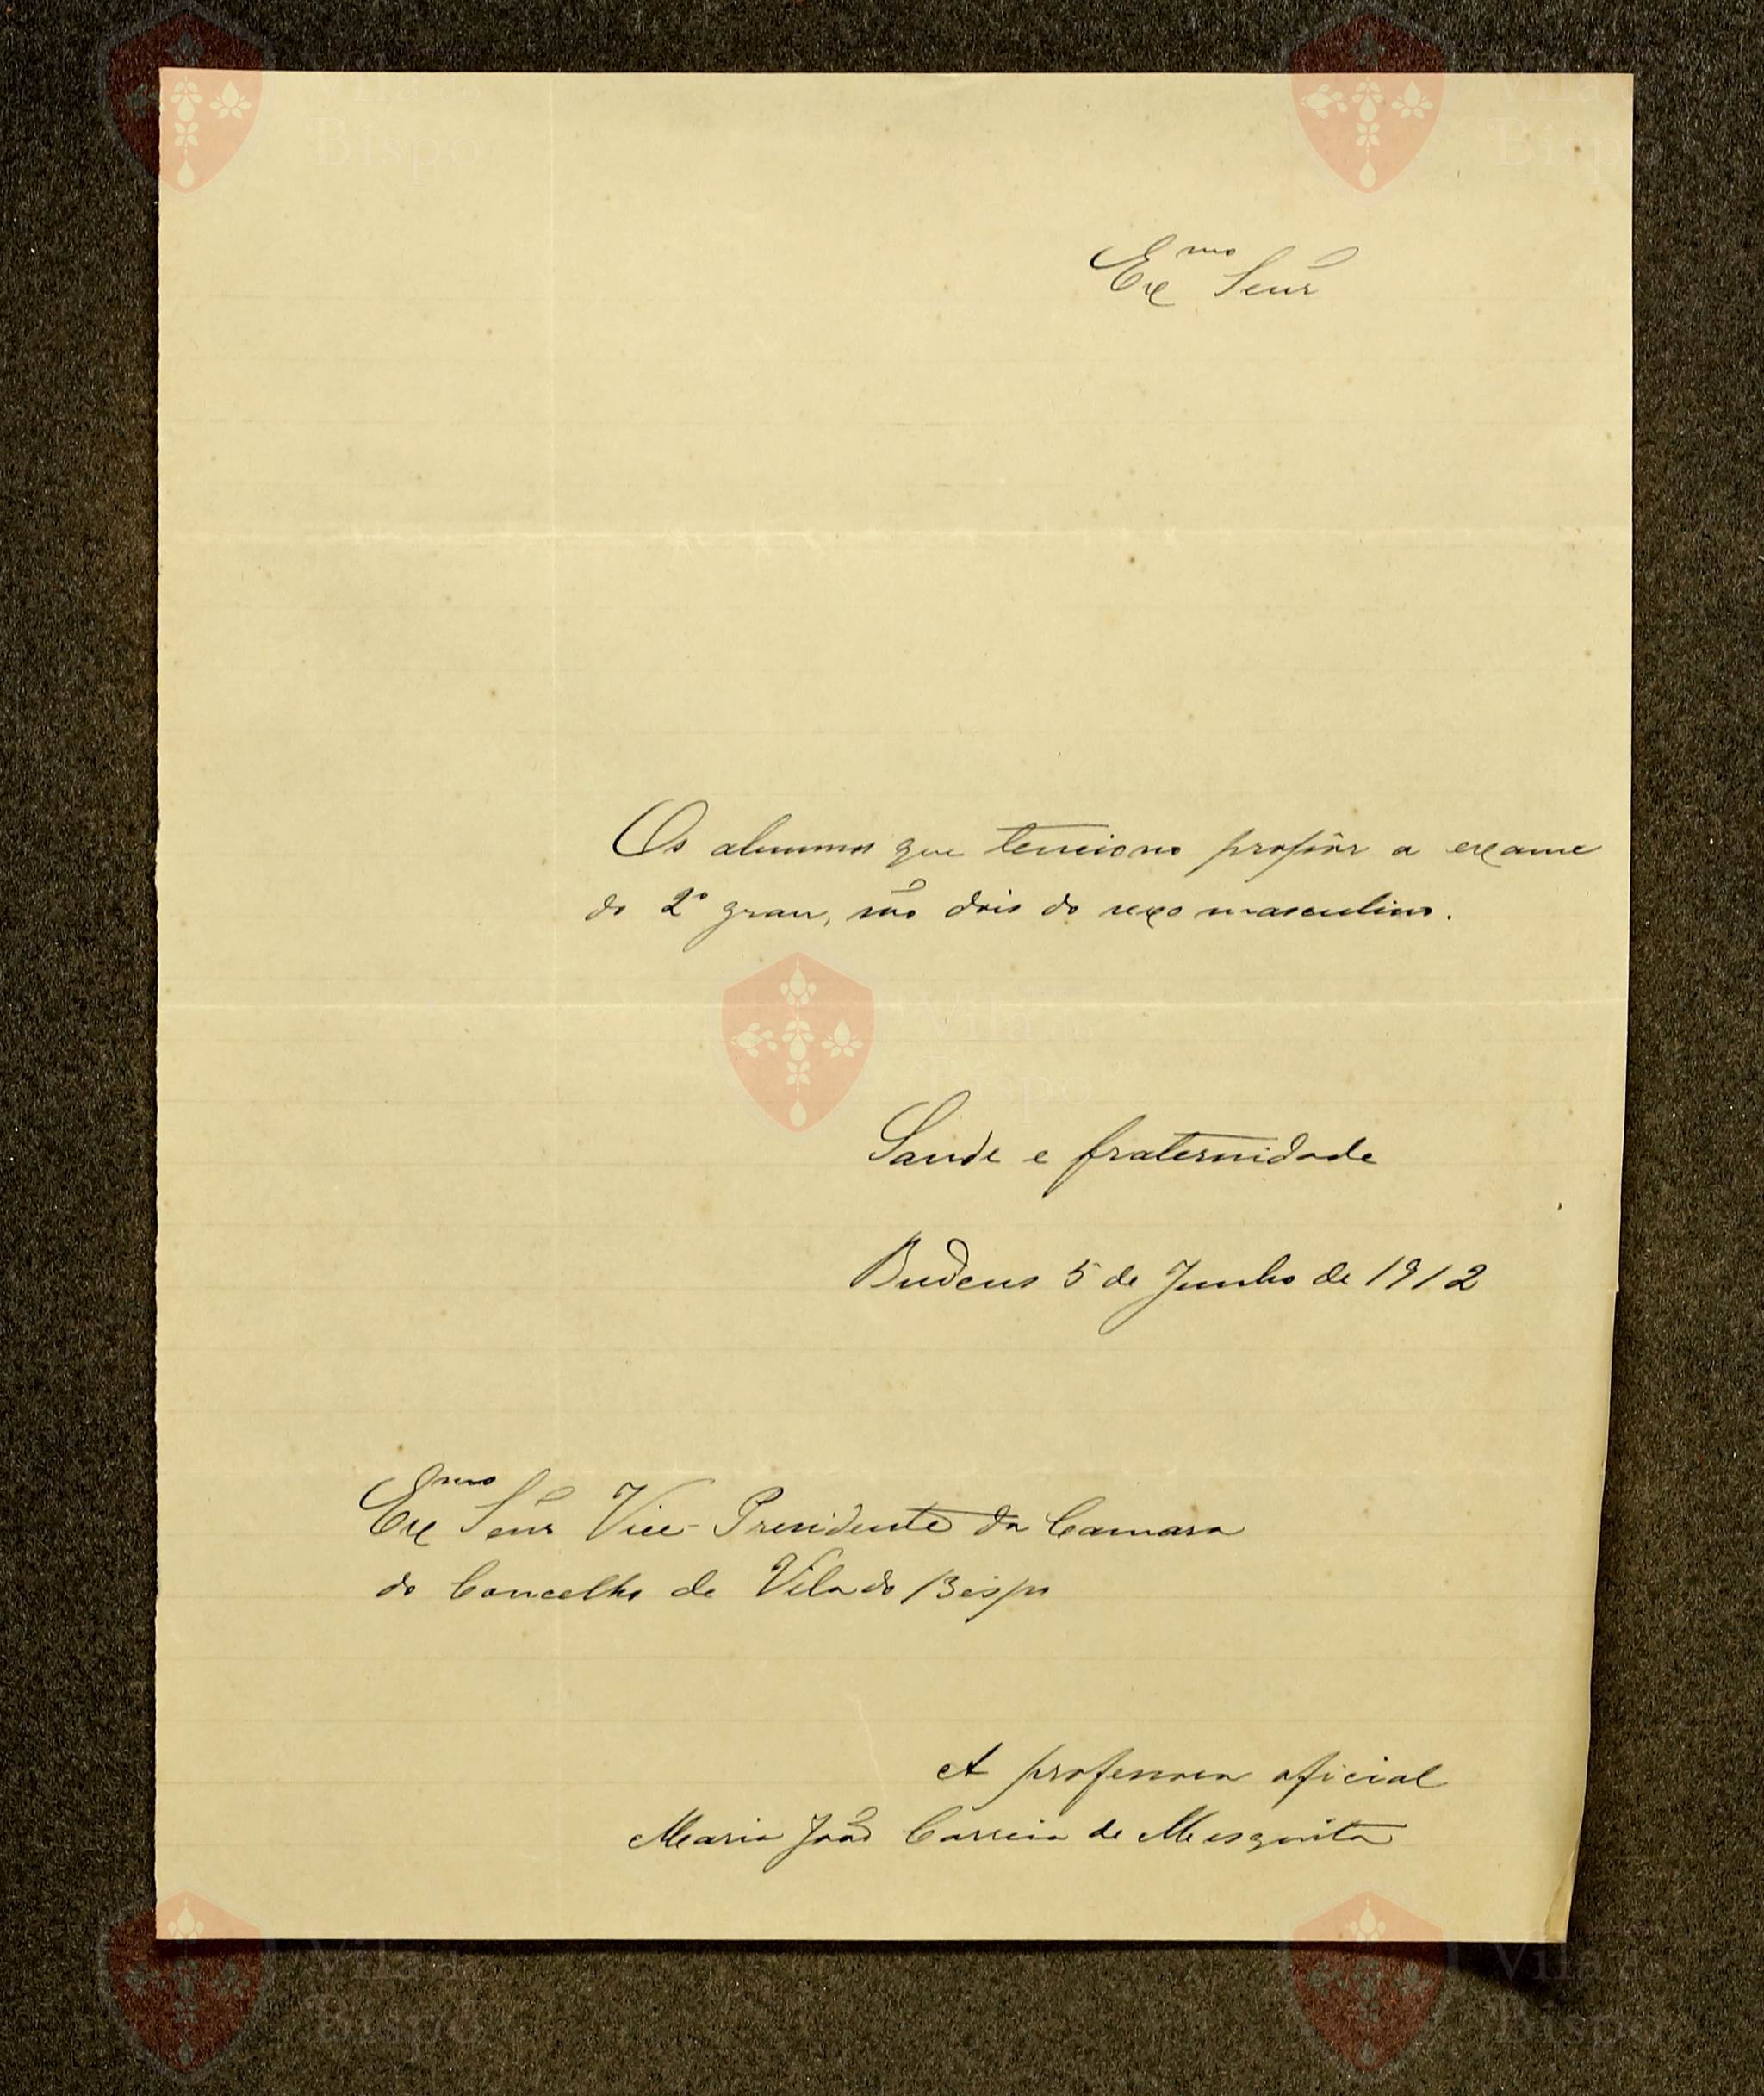 Exmo Senr
Os alumnos que tenciono propôr a exame
do 2º grau, são dois do sexo masculino.
Saude e fraternidade
Budens 5 de Junho de 1912
Exmo Senr Vice-Presidente da Camara
do Concelho de Vila do Bispo
A professora oficial
Maria João Correia de Mesquita
Vila do
Bispo